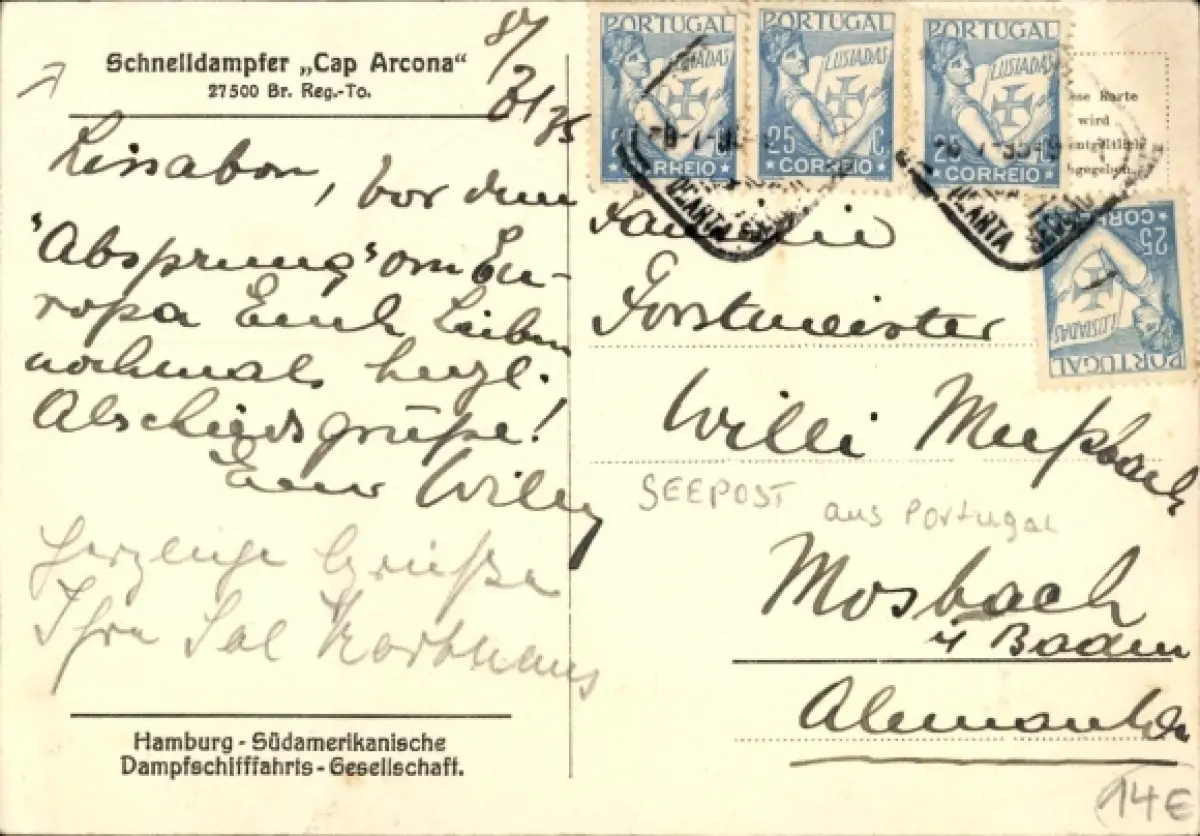 Schnelldampfer „Cap Arcona“
27500 Br. Reg.-To.
Lissabon, vor dem
"Absprung" von Eu-
ropa Euch Lieben
nochmals herzl.
Abschiedsgrüße!
Euer Willy
Herzliche Grüße
Ihre
Hamburg - Südamerikanische
Dampfschifffahrts - Gesellschaft.
PORTUGAL
LUSIADAS
25 C.
CORREIO
PORTUGAL
LUSIADAS
25 C.
CORREIO
PORTUGAL
LUSIADAS
25 C.
CORREIO
PORTUGAL
LUSIADAS
25
CORREIO
ese Karte
wird
unentgeltlich
abgegeben.
Familie
Forstmeister
Willi Meßbach
SEEPOST aus Portugal
Mosbach
Baden
14€